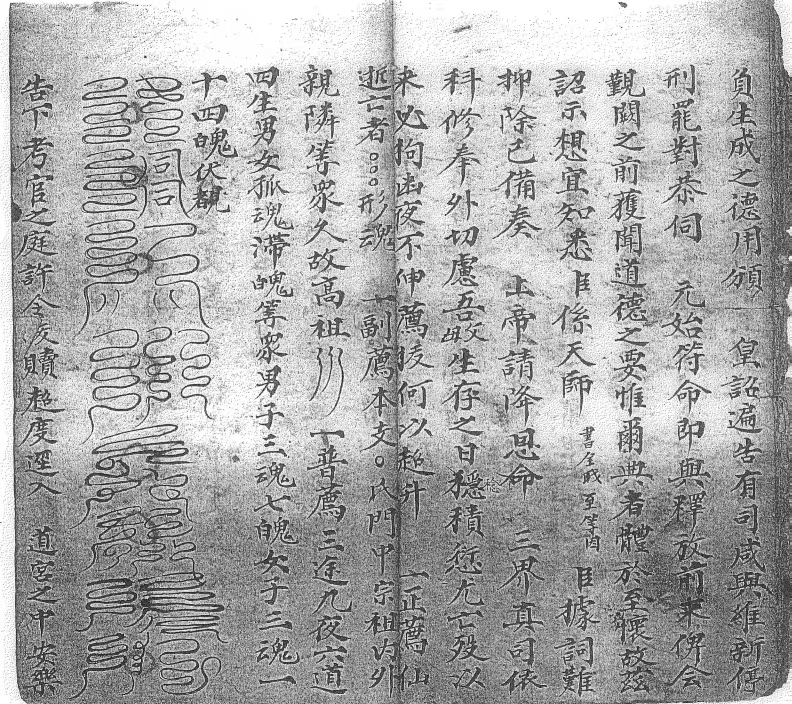 負生成之德用頒　皇詔遍告有司咸與維新停
刑罷對恭伺　元始符命即與釋放前來俾会
觀闕之前獲聞道德之要惟爾典者體於至懷故玆
詔示想宜知悉臣係天師　至　臣據詞難
抑除已備奏　上帝請降恩命　三界真司依
科修奉外切慮吾父母生存之日穩積愆尤亡歿以
来必拘幽夜不伸薦拔何以超升　一正薦仙
逝亡者○○○形魂　一副薦本支○氏門中宗祖内外
親隣等眾久故高祖　一普薦三途九夜六道
四生男女孤魂滯魄等眾男子三魂七魄女子三魂一
十四魄伏覩
告下考官之庭許令　贖超度逕入　道宮之中安樂